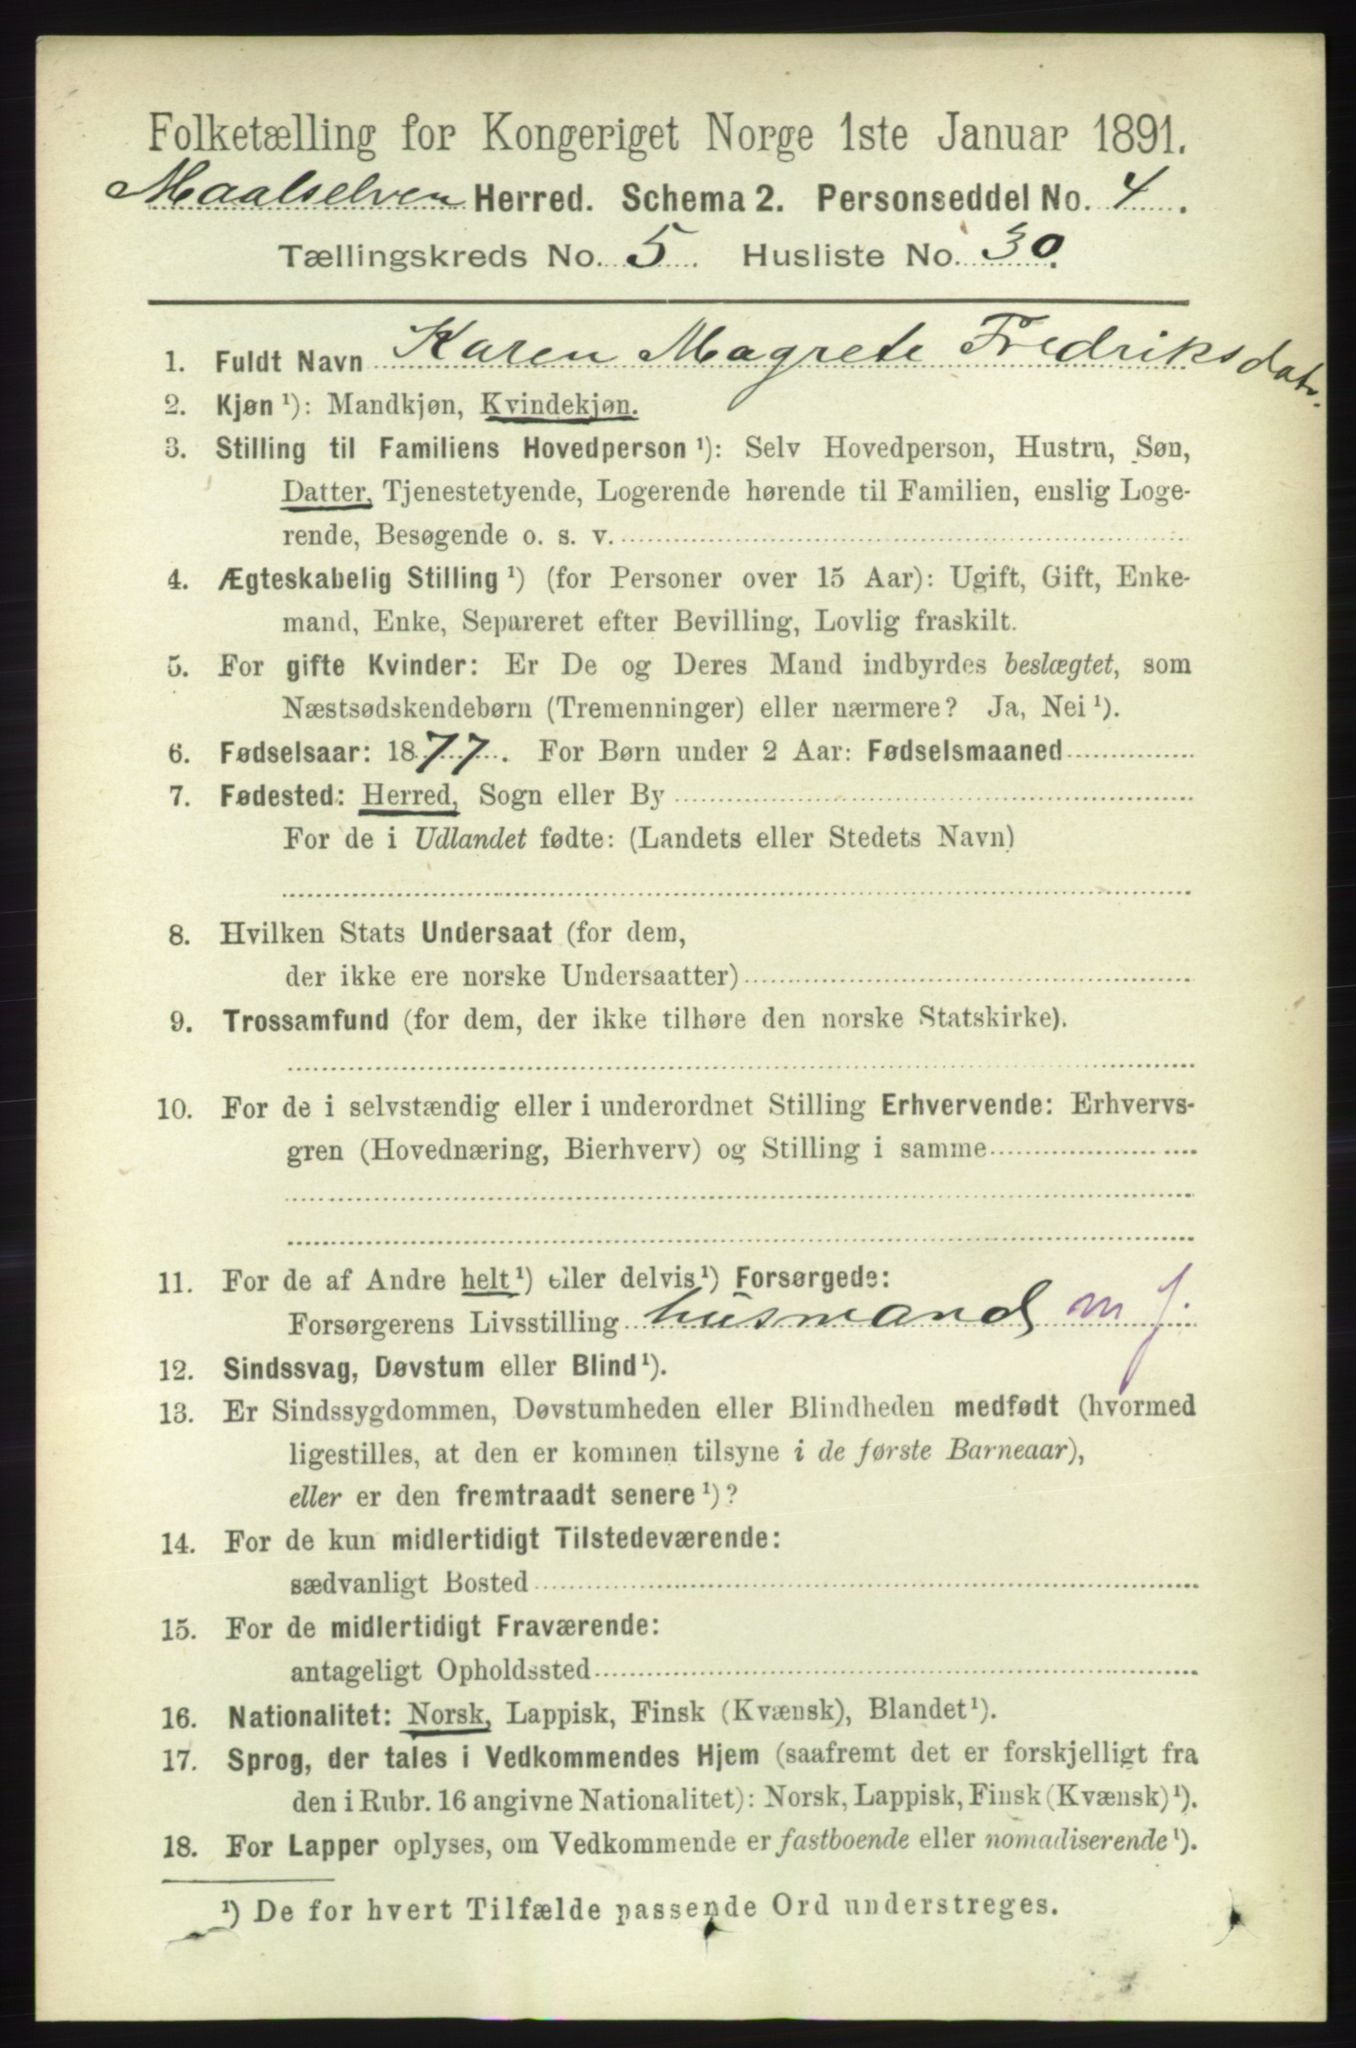 Folketælling for Kongeriget Norge 1ste Januar 1891.
Maalselven Herred. Schema 2. Personseddel No. 4.
Tællingskreds No. 5. Husliste No. 30.
1. Fuldt Navn Karen Magrete Fredriksdatr.
2. Kjøn ¹): Mandkjøn, Kvindekjøn.
3. Stilling til Familiens Hovedperson ¹): Selv Hovedperson, Hustru, Søn,
Datter, Tjenestetyende, Logerende hørende til Familien, enslig Loge-
rende, Besøgende o. s. v.
4. Ægteskabelig Stilling ¹) (for Personer over 15 Aar): Ugift, Gift, Enke-
mand, Enke, Separeret efter Bevilling, Lovlig fraskilt.
5. For gifte Kvinder: Er De og Deres Mand indbyrdes beslægtet, som
Næstsødskendebørn (Tremenninger) eller nærmere? Ja, Nei ¹).
6. Fødselsaar: 1877. For Børn under 2 Aar: Fødselsmaaned
7. Fødested: Herred, Sogn eller By
For de i Udlandet fødte: (Landets eller Stedets Navn)
8. Hvilken Stats Undersaat (for dem,
der ikke ere norske Undersaatter)
9. Trossamfund (for dem, der ikke tilhøre den norske Statskirke).
10. For de i selvstændig eller i underordnet Stilling Erhvervende: Erhvervs-
gren (Hovednæring, Bierhverv) og Stilling i samme
11. For de af Andre helt ¹) eller delvis ¹) Forsørgede:
Forsørgerens Livsstilling husmand m j.
12. Sindssvag, Døvstum eller Blind ¹).
13. Er Sindssygdommen, Døvstumheden eller Blindheden medfødt (hvormed
ligestilles, at den er kommen tilsyne i de første Barneaar),
eller er den fremtraadt senere ¹)?
14. For de kun midlertidigt Tilstedeværende:
sædvanligt Bosted
15. For de midlertidigt Fraværende:
antageligt Opholdssted
16. Nationalitet: Norsk, Lappisk, Finsk (Kvænsk), Blandet ¹).
17. Sprog, der tales i Vedkommendes Hjem (saafremt det er forskjelligt fra
den i Rubr. 16 angivne Nationalitet): Norsk, Lappisk, Finsk (Kvænsk) ¹).
18. For Lapper oplyses, om Vedkommende er fastboende eller nomadiserende ¹).
¹) De for hvert Tilfælde passende Ord understreges.